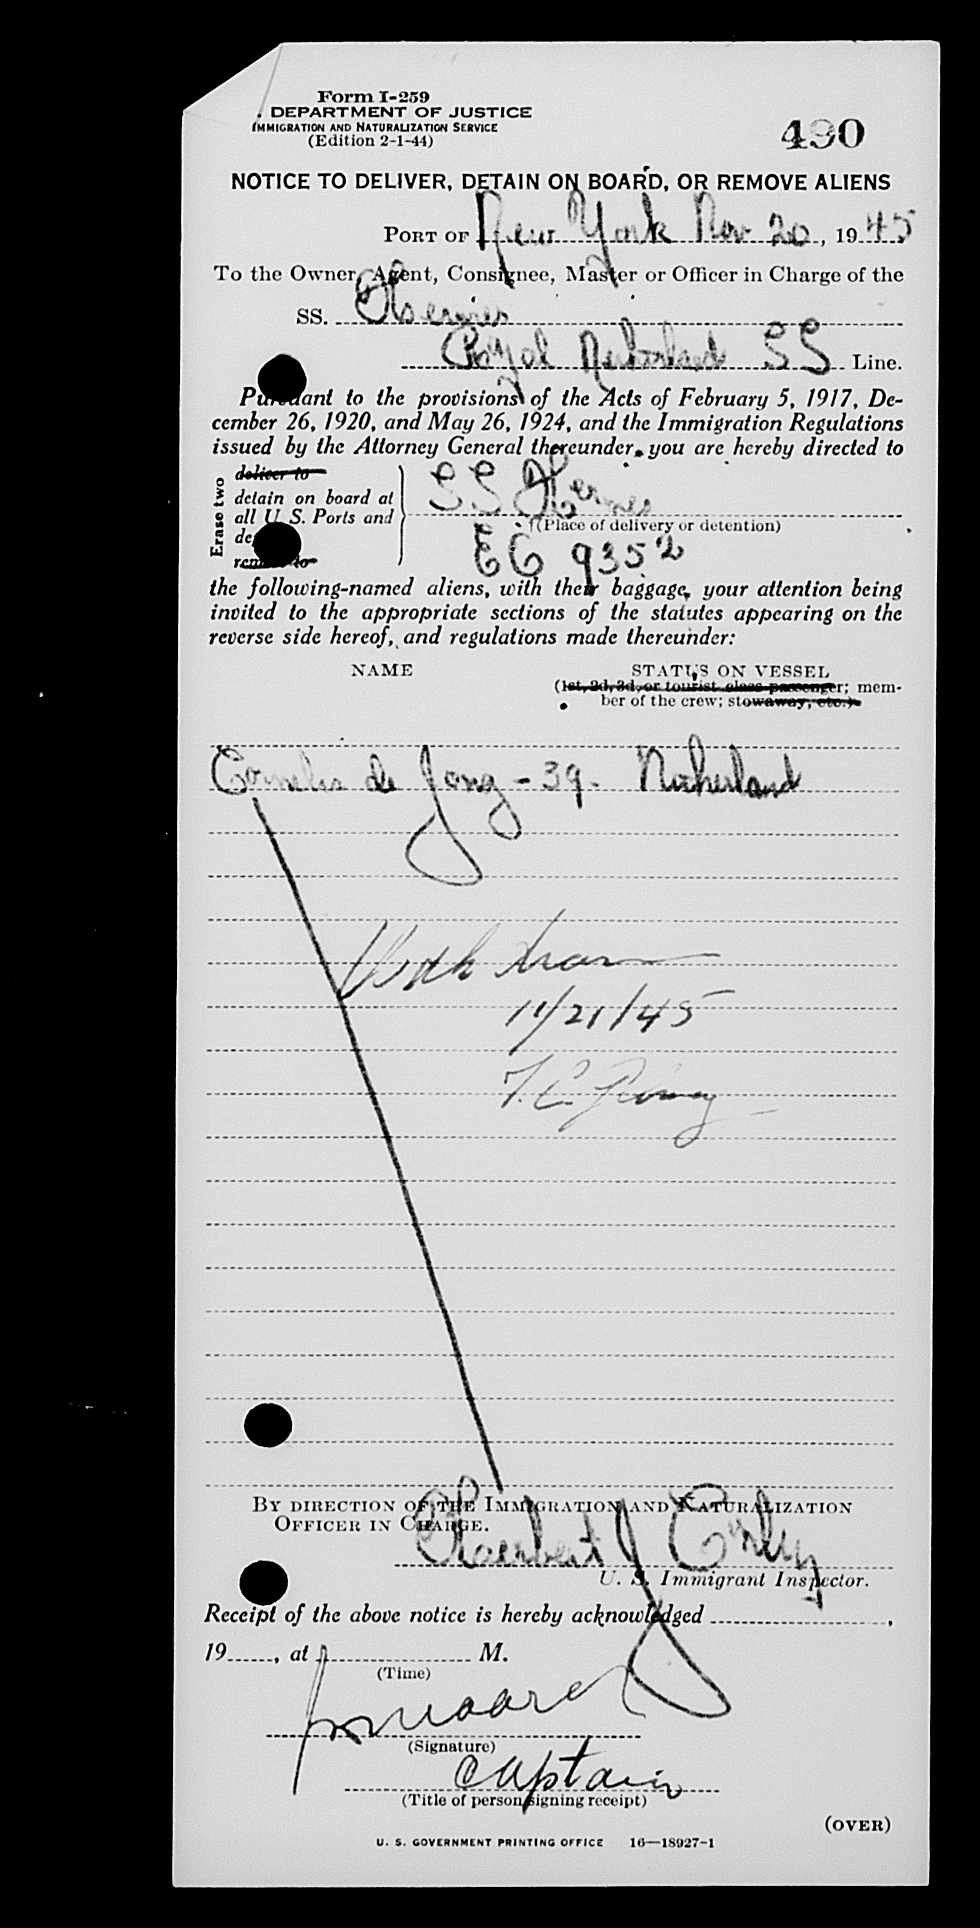 Form I-259
. DEPARTMENT OF JUSTICE
IMMIGRATION AND NATURALIZATION SERVICE
(Edition 2-1-44)
490
NOTICE TO DELIVER, DETAIN ON BOARD, OR REMOVE ALIENS
PORT OF New York Nov 20, 1945
To the Owner, Agent, Consignee, Master or Officer in Charge of the
SS.
Royal Netherland SS Line.
Pursuant to the provisions of the Acts of February 5, 1917, De-
cember 26, 1920, and May 26, 1924, and the Immigration Regulations
issued by the Attorney General thereunder, you are hereby directed to
Erase two
deliver to
detain on board at
all U. S. Ports and
de
remove to
SS
(Place of delivery or detention)
9352
the following-named aliens, with their baggage, your attention being
invited to the appropriate sections of the statutes appearing on the
reverse side hereof, and regulations made thereunder:
NAME
STATUS ON VESSEL
(1st, 2d, 3d, or tourist class passenger; mem-
ber of the crew; stowaway, etc.)
Cornelis de Jong - 39 - Netherland
11/21/45
BY DIRECTION OF THE IMMIGRATION AND NATURALIZATION
OFFICER IN CHARGE.
U. S. Immigrant Inspector.
Receipt of the above notice is hereby acknowledged ,
19 , at M.
(Time)
(Signature)
captain
(Title of person signing receipt)
(OVER)
U. S. GOVERNMENT PRINTING OFFICE 16—18927-1